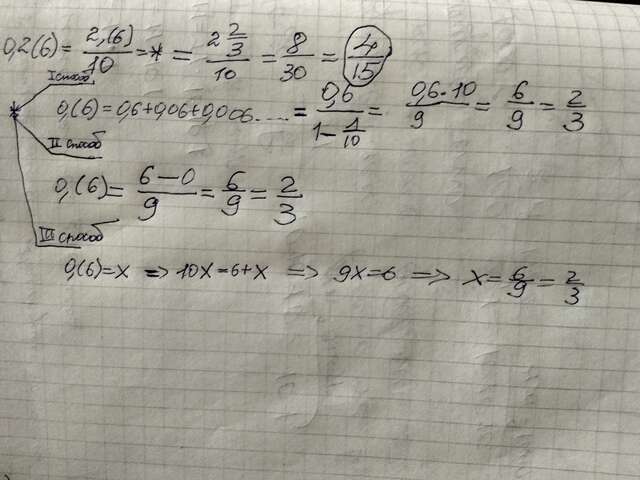 0,2(6) = 2,(6)/10 = * = 2 2/3 / 10 = 8/30 = 4/15
I способ
* 0,(6) = 0,6+0,06+0,006..... = 0,6/(1 - 1/10) = 0,6·10/9 = 6/9 = 2/3
II способ
0,(6) = 6-0/9 = 6/9 = 2/3
III способ
0,(6)=x => 10x=6+x => 9x=6 => x=6/9=2/3